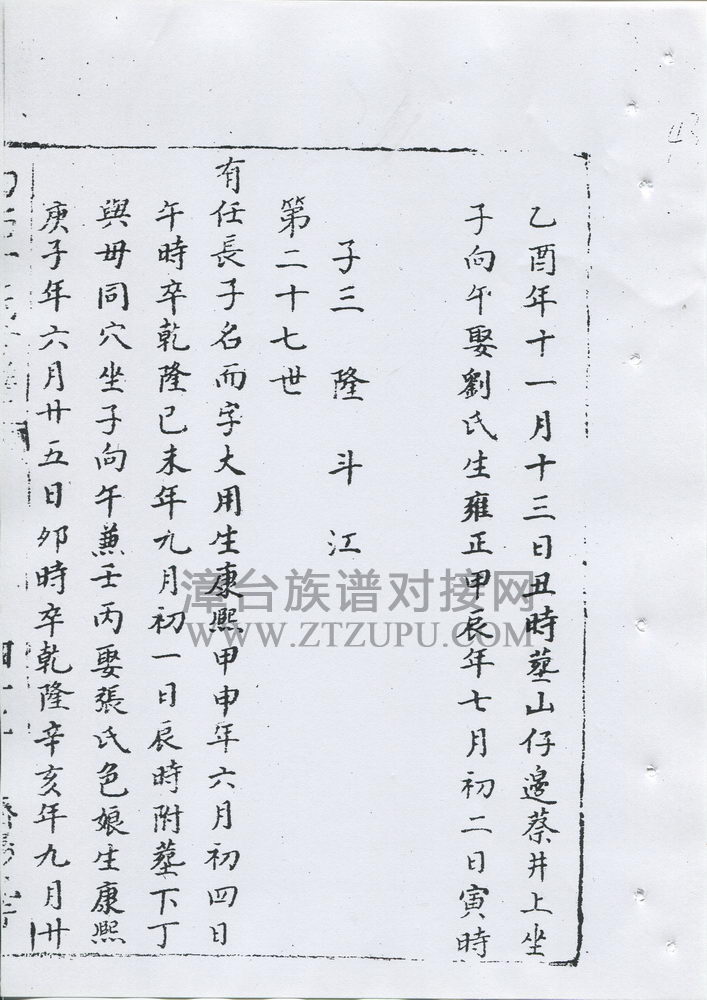 乙酉年十一月十三日丑時塟山仔邊蔡井上坐
子向午娶劉氏生雍正甲辰年七月初二日寅時
子三 隆 斗 江
第二十七世
有任長子名而字大用生康熙甲申年六月初四日
午時卒乾隆已未年九月初一日辰時附塟下丁
與毋同穴坐子向午蒹壬丙娶張氏色娘生康熙
庚子年六月廿五日夘時卒乾隆辛亥年九月廿
漳台族谱对接网
WWW.ZTZUPU.COM